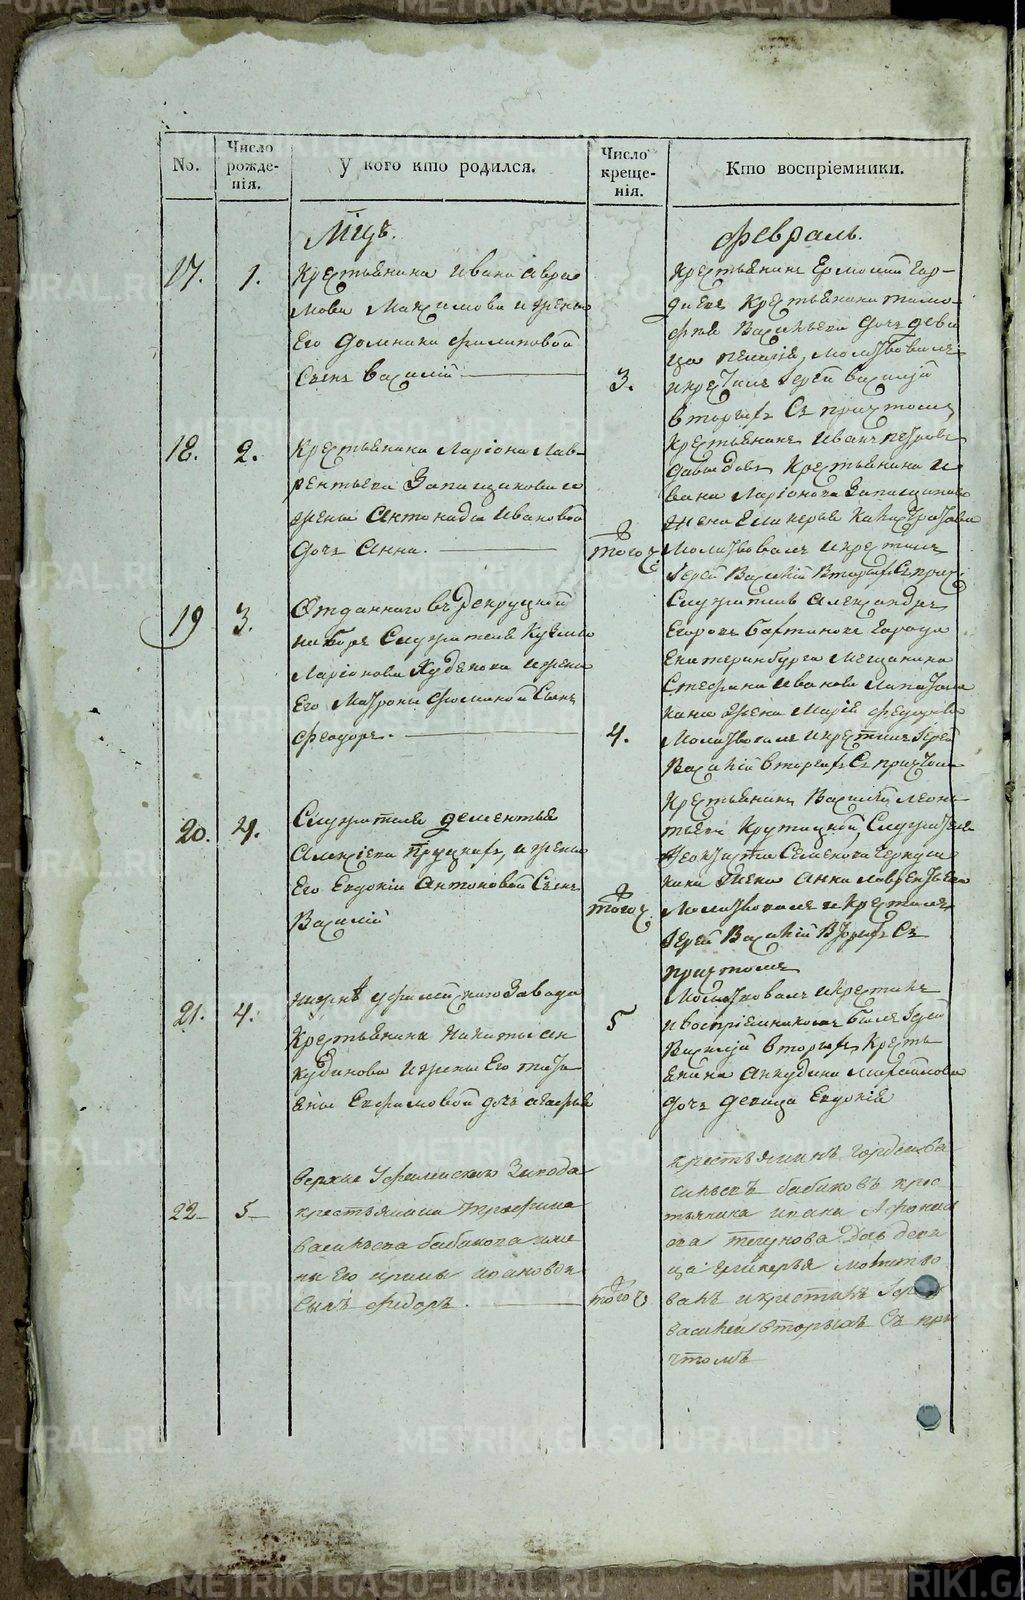 METRIKI.GASO-URAL.RU
No.
Число рожде-нія.
У кого кто родился.
Число креще-нія.
Кто воспріемники.
Мцъ.
Февраль.
17.
1.
Крестьянина Ивана Авра
мова Максимова и жены
Его Домники Филиповой
Сынъ Василій
3.
Крестьянинъ Ермолай Гор-
диевъ Крестьянина тимо-
фея Васильева дочь деви
ца Пелагія, Молитвовалъ
и крестилъ Іерей Василій
Вторыхъ Съ причтомъ
18.
2.
Крестьянина Ларіона Лав-
рентьева Запащикова и
жены Антониды Ивановой
дочь Анна.
того ч
Крестьянинъ Иванъ петровъ
давыдовъ Крестьянина И
вана Ларіонова Запащикова
жена Гликерья
Молитвовалъ и крестилъ
Іерей Василій Вторыхъ Съ прич
19
3.
Отданнаго въ рекруцкой
наборъ Служителя Кузьмы
Ларіонова и жены
Его Матроны Фоминой Сынъ
Феодоръ.
4.
Служитель Александръ
Егоровъ города
Екатеринбурга Мещанина
Стефана Иванова
жена Марія Федорова
Молитвовалъ и крестилъ Іерей
Василій вторыхъ Съ причтомъ
20.
4.
Служителя дементья
Алексеева и жены
Его Евдокіи Антоновой Сынъ
Василій
того ч
Крестьянинъ Василій Леон
тьевъ Крутицкой, Служителя
Семенова
жена Анна Лаврентьева
Молитвовалъ и Крестилъ
Іерей Василій Вторыхъ Съ
причтомъ
21.
4.
Нижне уфалейскаго Завода
Крестьянина Никиты Ан
кудинова и жены Его татья
ны Ефимовой дочь Агафья
5
Молитвовалъ и крестилъ
и воспріемникомъ былъ Іерей
Василій вторыхъ Кресть
янина Анкудина Михайлова
дочь девица Евдокія
22
5
верхъ Уфалейскаго Завода
крестьянина трофима
васильева бабикова и же
ны Его ивановой
сынъ Федоръ.
того ч
крестьянинъ гордей ва
сильевъ бабиковъ крес
тьянина ивана Афонась
ева дочь деви
ца гликерья молитво
валъ и крестилъ Іерей
василей вторыхъ съ при
чтомъ